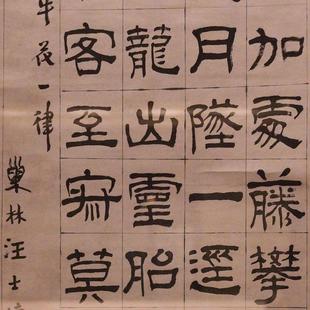 加處藤攀
月墜一逕
龍出靈胎
客至寂莫
牛花一律
巢林汪士